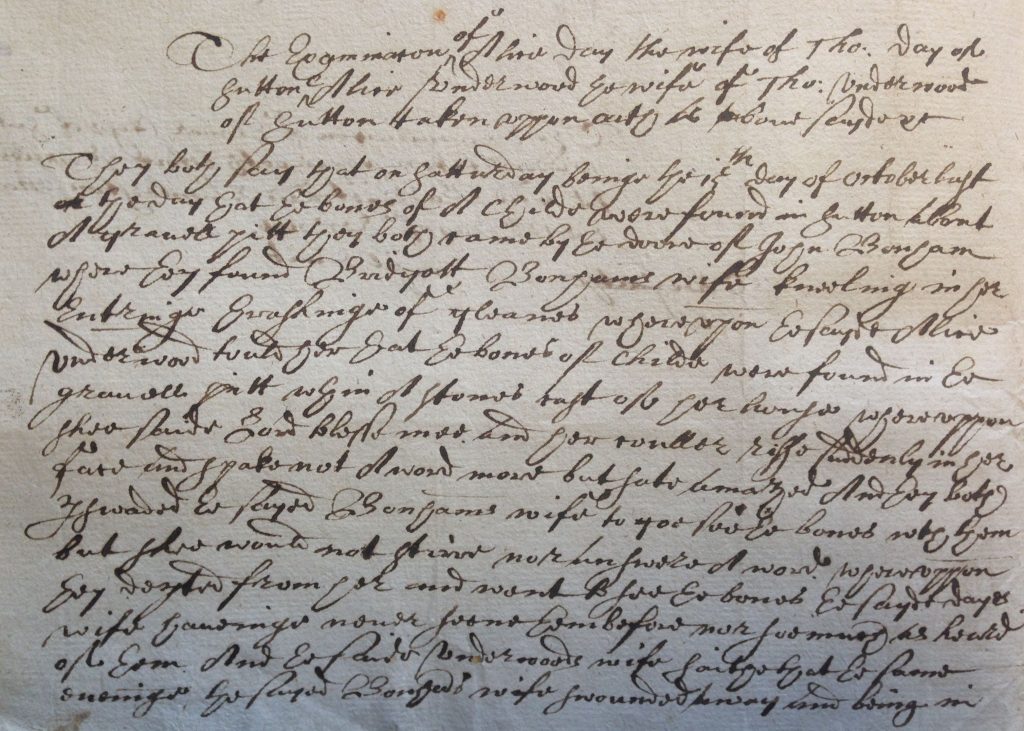 The Examinacon of Alice Day the wife of Tho: Day of
Hutton Alice Underwood the wife of Tho: Underwood
of Hutton taken uppon oath as above sayde
They both say that on Satturday beinge the day of October last
the day that the bones of A Childe were found in Hutton About
A gravell pitt they both came by the doore of John Bonham
where they found Bridgett Bonhams wife kneeling in her
Entringe thrashinge of gleanes whereupon the sayde Alice
Underwood tould her that the bones of Childe were found in the
gravell pitt wthin A stones cast of her house whereuppon
shee saide Lord blesse mee and her culler risse suddenly in her
face and spake not A word more but sate amazed And they both
the sayed Bonhams wife to goe see the bones wth them
but shee would not stirre nor answere A word whereuppon
they depted from her and went & see the bones the sayde Dayes
wife haveinge never seene them before nor soe much as heard
of them And the saide Underwoods wife saithe that the same
eveninge the sayed Bonhams wife swounded away and being in